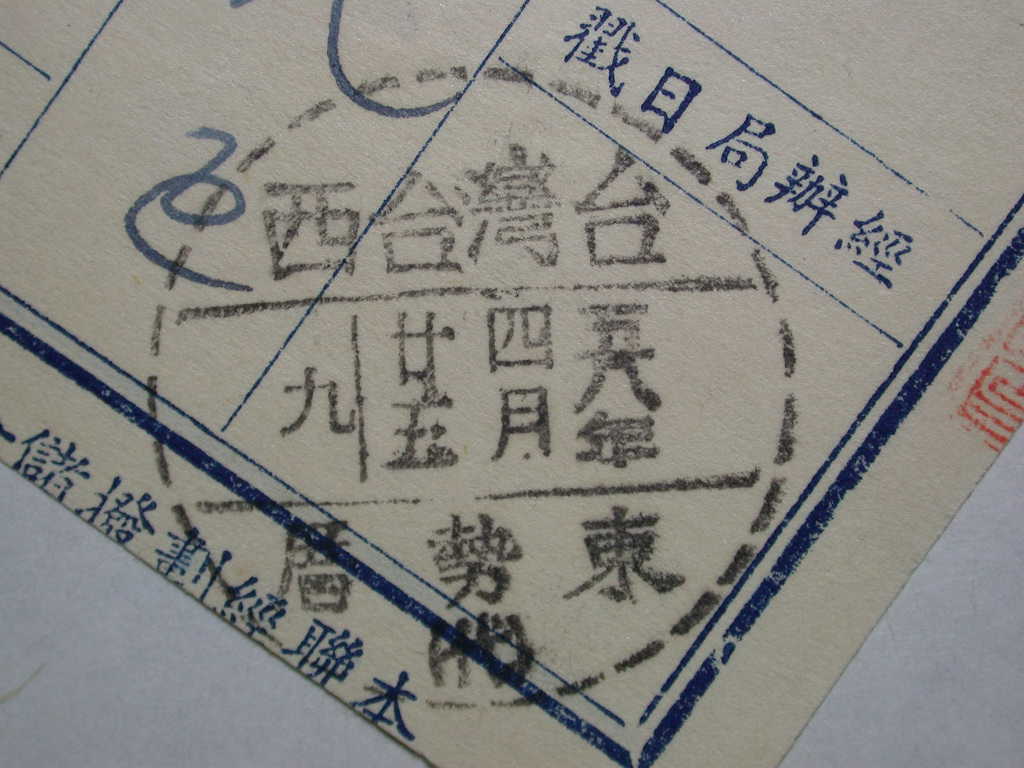 經辦局日戳
台灣台西
五八年
四月
廿五
九
東勢厝
本聯經劃撥儲